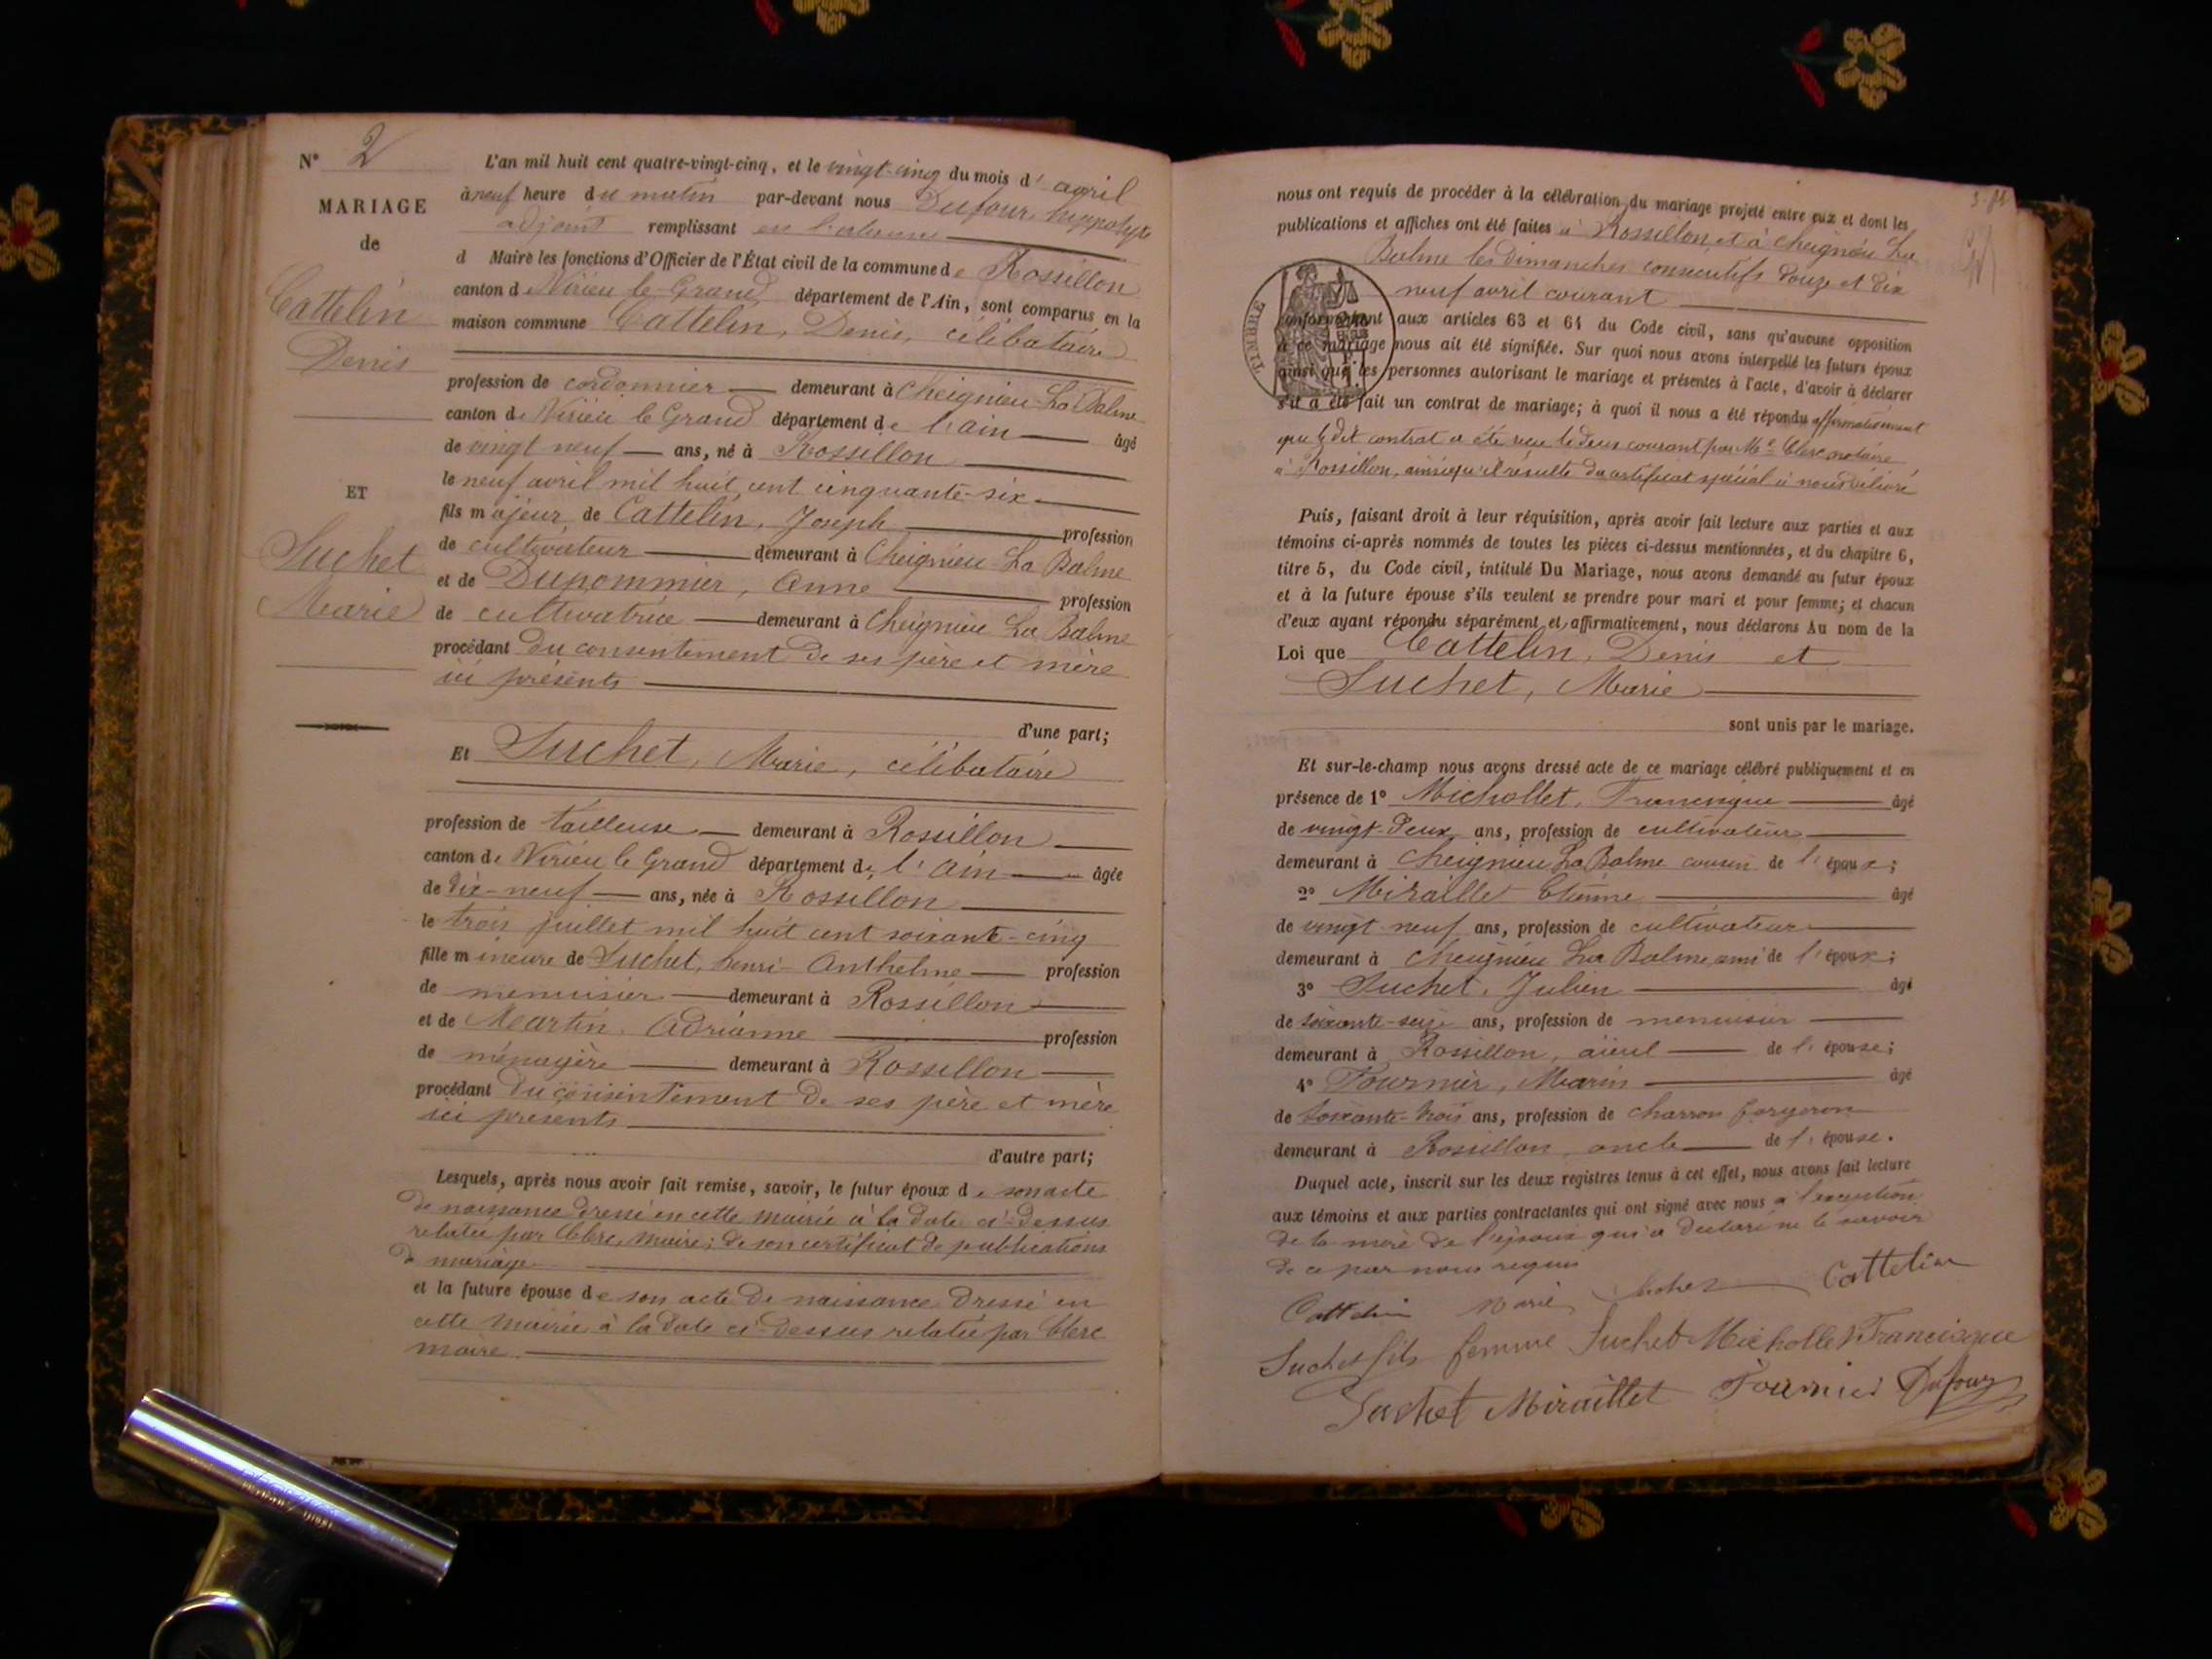 N° 2
MARIAGE
de
Cattelin
Denis
ET
Suchet
Marie
L'an mil huit cent quatre-vingt-cinq, et le vingt-cinq du mois d' avril
à neuf heure du matin par-devant nous Dufour, hyppolyte
adjoint remplissant
d Maire les fonctions d'Officier de l'État civil de la commune de Rossillon
canton de Virieu le Grand département de l'Ain, sont comparus en la
maison commune Cattelin, Denis, célibataire
profession de cordonnier demeurant à Cheignieu-La Balme
canton de Virieu le Grand département de l'ain âgé
de vingt neuf ans, né à Rossillon
le neuf avril mil huit cent cinquante-six
fils majeur de Cattelin, Joseph profession
de cultivateur demeurant à Cheignieu-La Balme
et de Dupommier, Anne profession
de cultivatrice demeurant à Cheignieu La Balme
procédant du consentement de ses père et mère
ici présents
d'une part;
Et Suchet, Marie, célibataire
profession de tailleuse demeurant à Rossillon
canton de Virieu le Grand département de l'Ain âgée
de dix-neuf ans, née à Rossillon
le trois juillet mil huit cent soixante-cinq
fille mineure de Suchet, henri Anthelme profession
de menuisier demeurant à Rossillon
et de Martin, Adrianne profession
de ménagère demeurant à Rossillon
procédant du consentement de ses père et mère
ici présents
d'autre part;
Lesquels, après nous avoir fait remise, savoir, le futur époux de son acte
de naissance dressé en cette mairie à la date ci-dessus
relatée par Clerc, maire; de son certificat de publications
de mariage
et la future épouse de son acte de naissance dressé en
cette mairie à la date ci-dessus relatée par Clerc
maire.
nous ont requis de procéder à la célébration du mariage projeté entre eux et dont les
publications et affiches ont été faites à Rossillon, et à Cheignieu La
Balme les dimanches consecutifs douze et dix
neuf avril courant
TIMBRE
conformément aux articles 63 et 64 du Code civil, sans qu'aucune opposition
à ce mariage nous ait été signifiée. Sur quoi nous avons interpellé les futurs époux
ainsi que les personnes autorisant le mariage et présentes à l'acte, d'avoir à déclarer
s'il a été fait un contrat de mariage; à quoi il nous a été répondu affirmativement
que le dit contrat a été reçu le deux courant par Me Clerc notaire
à Rossillon, ainsi qu'il résulte du certificat spécial à nous délivré
Puis, faisant droit à leur réquisition, après avoir fait lecture aux parties et aux
témoins ci-après nommés de toutes les pièces ci-dessus mentionnées, et du chapitre 6,
titre 5, du Code civil, intitulé Du Mariage, nous avons demandé au futur époux
et à la future épouse s'ils veulent se prendre pour mari et pour femme; et chacun
d'eux ayant répondu séparément et affirmativement, nous déclarons Au nom de la
Loi que Cattelin, Denis et
Suchet, Marie
sont unis par le mariage.
Et sur-le-champ nous avons dressé acte de ce mariage célébré publiquement et en
présence de 1° Michollet, Francisque âgé
de vingt-deux ans, profession de cultivateur
demeurant à Cheignieu La Balme cousin de l'époux;
2° Miraillet Etienne âgé
de vingt-neuf ans, profession de cultivateur
demeurant à Cheignieu La Balme, ami de l'époux;
3° Suchet, Julien âgé
de soixante-seize ans, profession de menuisier
demeurant à Rossillon, aïeul de l'épouse;
4° Fournier, Marin âgé
de soixante-trois ans, profession de charron forgeron
demeurant à Rossillon, oncle de l'épouse.
Duquel acte, inscrit sur les deux registres tenus à cet effet, nous avons fait lecture
aux témoins et aux parties contractantes qui ont signé avec nous à l'exception
de la mère de l'époux qui a déclaré ne le savoir
de ce par nous requis
Cattelin Marie Suchet Cattelin
Suchet fils femme Suchet Michollet Francisque
Suchet Miraillet Fournier Dufour